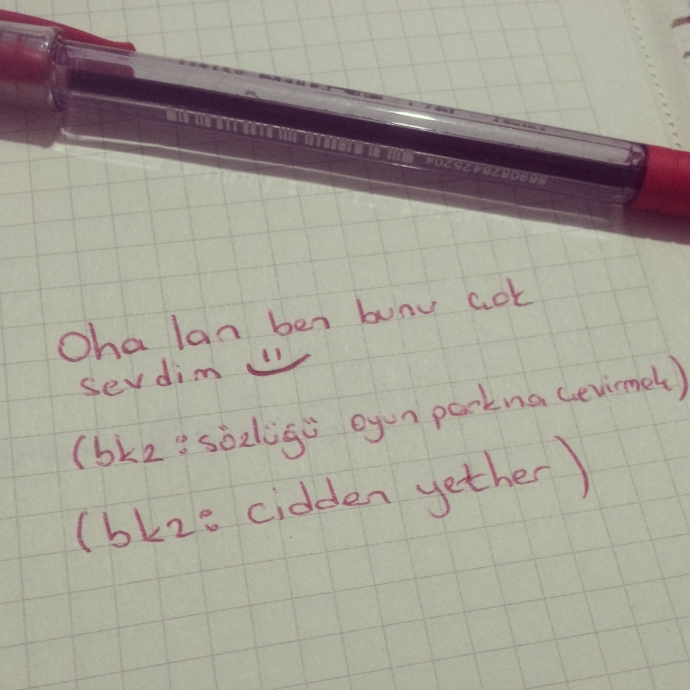 8690826425204
Oha lan ben bunu çok
sevdim
(bkz: sözlüğü oyun parkına çevirmek)
(bkz: cidden yether)